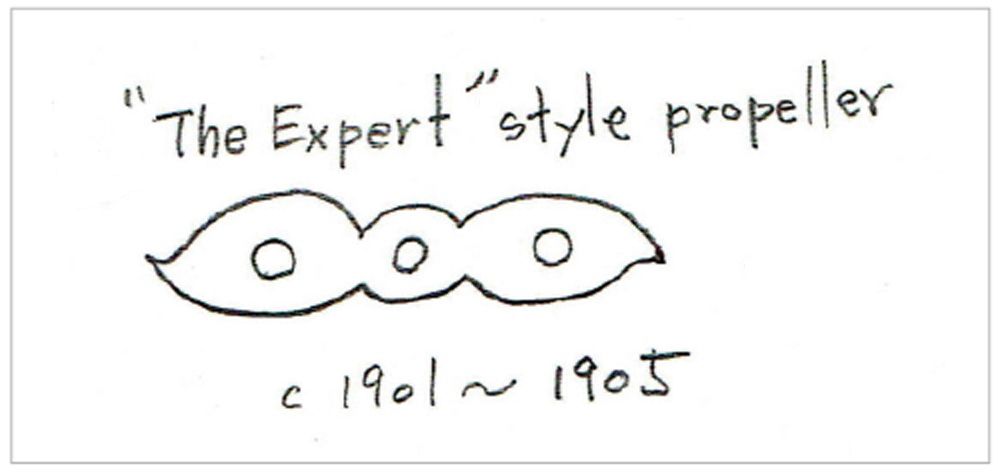 "The Expert" style propeller
c 1901 ~ 1905